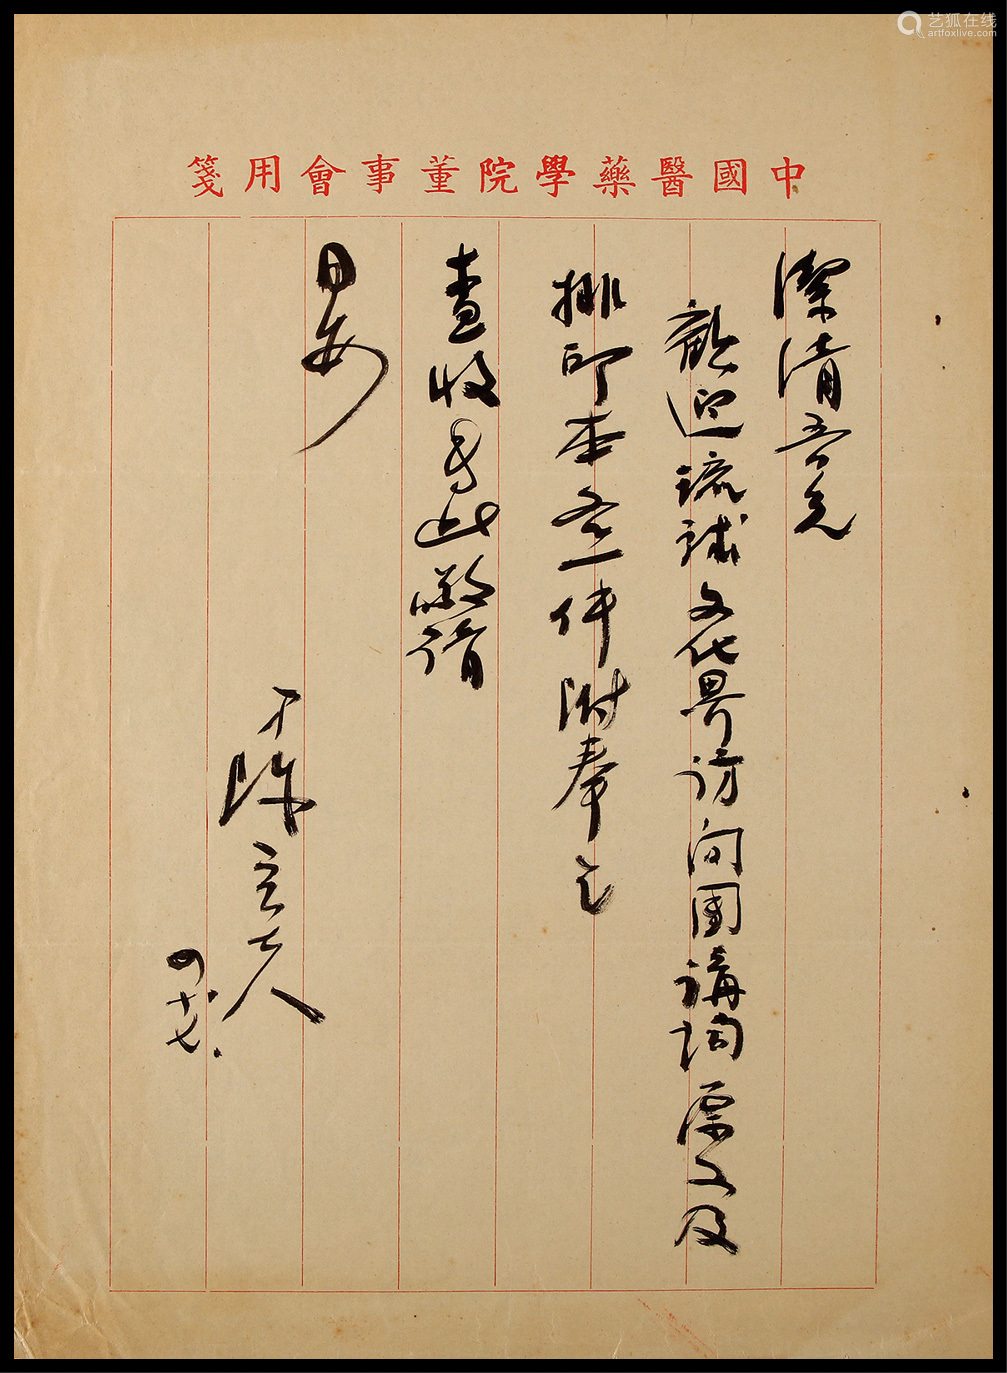 艺狐在线
artfoxlive.com
中國醫藥學院董事會用箋
潔清吾兄
歡迎琉球文化界訪問團講詞原文及
排印本各一件附奉乞
查收專此敬請
日安
弟陳立夫
四十七